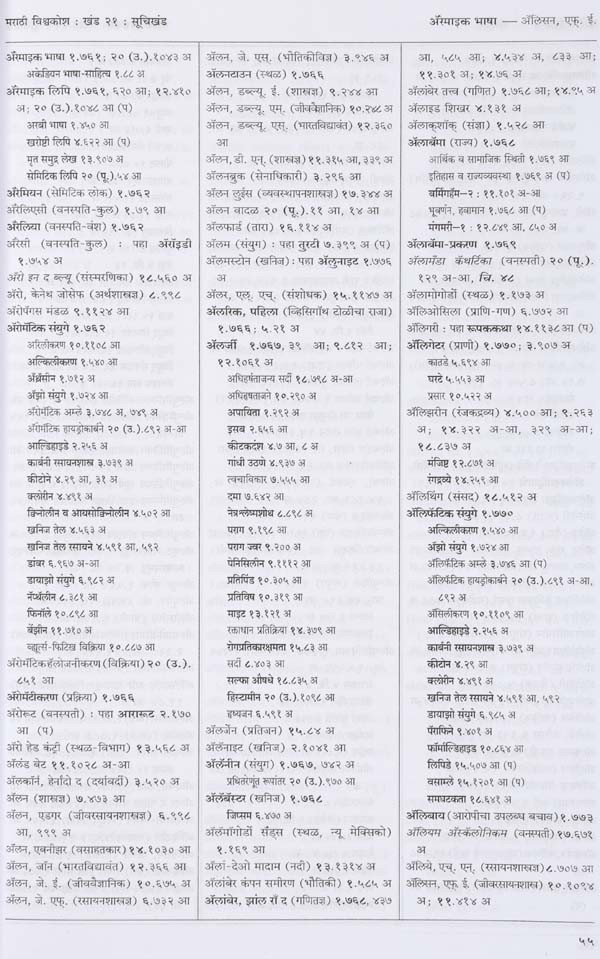 मराठी विश्वकोश : खंड २१ : सूचिखंड
ॲरॅमाइक भाषा — ॲलिसन, एफ्. ई.
ॲरॅमाइक भाषा १.७६१; २० (उ.).१०४३ अ
अकेडियन भाषा-साहित्य १.८८ अ
ॲरॅमाइक लिपि १.७६१, ६२० आ; १२.४१०
अ; २० (उ.).१०४८ आ (प)
अरबी भाषा १.४५० आ
खरोष्ठी लिपि ४.६२२ आ (प)
मृत समुद्र लेख १३.९०७ अ
सेमिटिक लिपि २० (पू.).५४ आ
ॲरेमियन (सेमिटिक लोक) १.७६२
ॲरेलिएसी (वनस्पति-कुल) १.७९ आ
ॲरेलिया (वनस्पति-वंश) १.७६२
ॲरेसी (वनस्पति-कुल) : पहा ॲरॉइडी
१.७५४ अ
ॲरो इन द ब्ल्यू (संस्मरणिका) १८.५६० अ
ॲरो, केनेथ जोसेफ (अर्थशास्त्रज्ञ) ८.९९८
ॲरोपॅगस मंडळ ९.११२४ आ
ॲरोमॅटिक संयुगे १.७६२
अरिलीकरण १०.११०८ आ
अल्किलीकरण १.५४० आ
ॲंथ्रॅसीन १.७१२ अ
ॲझो संयुगे १.७२४ आ
ॲरोमॅटिक अम्ले ३.७४८ अ, ७४९ अ
ॲरोमॅटिक हायड्रोकार्बने २० (उ.).८९२ अ-आ
आल्डिहाइडे २.२५६ अ
कार्बनी रसायनशास्त्र ३.७३९ अ
कीटोने ४.२९ आ, ३१ अ
क्लोरीन ४.४९१ अ
क्विनोलीन व आयसोक्विनोलीन ४.५०२ आ
खनिज तेल ४.५६३ अ
खनिज तेल रसायने ४.५९१ आ, ५९२
डांबर ६.९६७ अ-आ
डायाझो संयुगे ६.९८२ अ
नॅप्थॅलीन ८.३८१ आ
फिनॉले १०.८९८ आ
बेंझीन ११.७१० अ
व्ह्यूर्ल्स-फिटिख विक्रिया १०.८८७ आ
ॲरोमॅटिकहॅलोजनीकरण (विक्रिया) २० (उ.).
८५१ आ
ॲरोमॅटीकरण (प्रक्रिया) १.७६६
ॲरोरूट (वनस्पती) : पहा आरारूट २.१७०
आ (प)
ॲरो हेड कंट्री (स्थळ-विभाग) १३.५६८ अ
ॲलंड बेट ११.१०२८ अ-आ
ॲलकॉर्न, हेर्नांदो द (दर्यावर्दी) ३.५२० अ
ॲलन (शास्त्रज्ञ) ७.४७३ आ
ॲलन, एडगर (जीवरसायनशास्त्रज्ञ) ६.९९८
आ, ९९९ अ
ॲलन, एबनीझर (वसाहतकार) १४.१०३० आ
ॲलन, जॉन (भारतविद्यावंत) १२.३६६ आ
ॲलन, जे. ई. (जीववैज्ञानिक) १०.६७५ अ
ॲलन, जे. एफ्. (रसायनशास्त्रज्ञ) ६.७३२ आ
ॲलन, जे. एस्. (भौतिकीविज्ञ) ३.९४६ अ
ॲलनटाउन (स्थळ) १.७६६
ॲलन, डब्ल्यू. ई. (शास्त्रज्ञ) ९.२४४ आ
ॲलन, डब्ल्यू. एम्. (जीववैज्ञानिक) १०.२४८ अ
ॲलन, डब्ल्यू. एस्. (भारतविद्यावंत) १२.३६०
आ
ॲलन, डी. एन्. (शास्त्रज्ञ) ११.३१५ आ, ३३९ अ
ॲलनब्रुक (सेनाधिकारी) ३.२९६ आ
ॲलन लुईस (व्यवस्थापनशास्त्रज्ञ) १७.३४४ अ
ॲलन वादळ २० (पू.).११ आ, १४ आ
ॲलफार्ड (तारा) १६.११४ अ
ॲलम (संयुग) : पहा तुरटी ७.३९९ अ (प)
ॲलमस्टोन (खनिज) : पहा ॲलुनाइट १.७७६
अ
ॲलर, एल्. एच्. (संशोधक) १५.११४७ अ
ॲलरिक, पहिला (व्हिसिगॉथ टोळीचा राजा)
१.७६६; ५.२१ अ
ॲलर्जी १.७६७, ३९ आ; ९.८१२ आ;
१२.१०६१ अ
अधिहर्षताजन्य सर्दी १८.७९८ अ-आ
अधिहृषताजने १०.२९० अ
अपायिता १.२९२ अ
इसब २.६५६ आ
कीटकदंश ४.७ आ, ८ अ
गांधी उठणे ४.९३७ अ
त्वचाविकार ७.५५५ आ
दमा ७.६४२ आ
नेत्रश्लेष्मशोथ ८.८९८ अ
पराग ९.१९८ आ
पराग ज्वर ९.२०० अ
पेनिसिलीन ९.१११२ आ
प्रतिपिंड १०.३०५ आ
प्रतिविष १०.३१९ आ
माइट १३.१२१ अ
रक्ताधान प्रतिक्रिया १४.३७९ आ
रोगप्रतिकारक्षमता १५.८३ आ
सर्दी ८.४०३ आ
सल्फा औषधे १८.८३५ अ
हिस्टामीन २० (उ.).१०९८ आ
हृष्यजन ६.५९१ अ
ॲलर्जेन (प्रतिजन) १५.८४ अ
ॲलॅनाइट (खनिज) २.१०४१ आ
ॲलॅनीन (संयुग) १.७६७, ७४२ अ
प्रथितरेणूंत रूपांतर २० (उ.).९७० आ
ॲलॅबॅस्टर (खनिज) १.७६८
जिप्सम ६.४७० अ
ॲलॅमॉगोर्डो सँड्स (स्थळ, न्यू मेक्सिको)
१.१६९ आ
ॲलां-देओ मादाम (नदी) १३.१३१४ अ
ॲलांबेर कंपन समीरण (भौतिकी) १.५८५ अ
ॲलांबेर, झांल राँ द (गणितज्ञ) १.७६८, ४३७
आ, ५८५ आ; ४.५३४ अ, ८३३ आ;
११.३०१ अ; १४.७६ अ
ॲलांबेर तत्त्व (गणित) १.७६८ आ; १४.९५ अ
ॲलाइड शिखर ४.१३१ अ
ॲलाकुर्शॉक् (संज्ञा) १.५२८ आ
ॲलाबॅमा (राज्य) १.७६८
आर्थिक व सामाजिक स्थिती १.७६९ आ
इतिहास व राज्यव्यवस्था १.७६९ अ
बर्मिंगहॅम–२ : ११.१०१ अ-आ
भूवर्णन, हवामान १.७६८ आ (प)
मंगमरी–१ : १२.८४९ आ, ८५० अ
ॲलाबॅमा-प्रकरण १.७६९
ॲलामँडा कॅथर्टिका (वनस्पती) २० (पू.).
१२९ अ-आ, चि. ४८
ॲलामोगोर्डो (स्थळ) १.१७३ अ
ॲलिओसिला (प्राणि-गण) ६.७७२ आ
ॲलिगरी : पहा रूपककथा १४.११३८आ (प)
ॲलिगेटर (प्राणी) १.७७०; ३.९०७ अ
कातडे ५.६९४ आ
घरटे ५.५५३ आ
प्रसार १०.५२२ अ
ॲलिझरीन (रंजकद्रव्य) ४.५०० आ; ९.२६३
अ; १४.३२२ अ-आ, ३२९ अ-आ;
१८.८३७ अ
मंजिष्ठ १२.८७१ अ
रंगद्रव्ये १४.२५९ आ
ॲलिथिंग (संसद) १८.५१२ अ
ॲलिफॅटिक संयुगे १.७७०
अल्किलीकरण १.५४० आ
ॲझो संयुगे १.७२४ आ
ॲलिफॅटिक अम्ले ३.७४६ आ (प)
ॲलिफॅटिक हायड्रोकार्बने २० (उ.).८९१ अ-आ,
८९२ अ
ॲसिलीकरण १०.११०९ अ
आल्डिहाइडे २.२५६ अ
कार्बनी रसायनशास्त्र ३.७३९ अ
कीटोन ४.२९ अ
क्लोरीन ४.४९१ अ
खनिज तेल रसायने ४.५९१ आ, ५९२
डायाझो संयुगे ६.९८५ अ
पॅराफिने ९.४०१ अ
फॉर्माल्डिहाइड १०.८६४ आ
लिपिडे १५.५०७ आ (प)
वसाम्ले १५.१२०१ आ (प)
समघटकता १८.६४१ अ
ॲलिबाय (आरोपीचा उपलब्ध बचाव) १.७७३
ॲलियम ॲस्कॅलोनिकम (वनस्पती) १७.६७१
अ
ॲलिये, एच्. एन्. (रसायनशास्त्रज्ञ) ८.७०७ आ
ॲलिसन, एफ्. ई. (जीवरसायनशास्त्रज्ञ) १०.१०९४
अ; ११.४१४ अ
५५